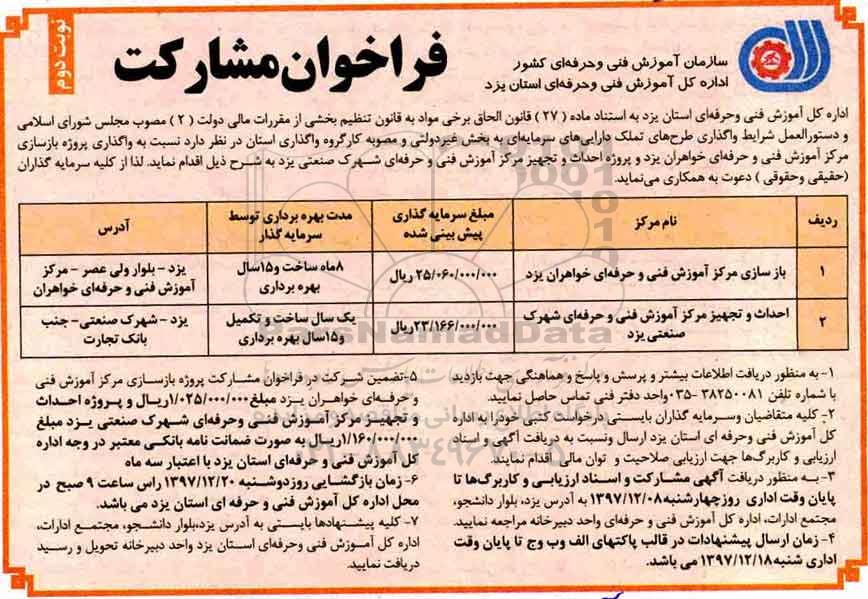 نوبت دوم
فراخوان مشارکت
سازمان آموزش فنی وحرفه‌ای کشور
اداره کل آموزش فنی وحرفه‌ای استان یزد
اداره کل آموزش فنی وحرفه‌ای استان یزد به استناد ماده ( ۲۷ ) قانون الحاق برخی مواد به قانون تنظیم بخشی از مقررات مالی دولت ( ۲ ) مصوب مجلس شورای اسلامی
و دستورالعمل شرایط واگذاری طرح‌های تملک دارایی‌های سرمایه‌ای به بخش غیردولتی و مصوبه کارگروه واگذاری استان در نظر دارد نسبت به واگذاری پروژه بازسازی
مرکز آموزش فنی و حرفه‌ای خواهران یزد و پروژه احداث و تجهیز مرکز آموزش فنی و حرفه‌ای شهرک صنعتی یزد به شرح ذیل اقدام نماید. لذا از کلیه سرمایه گذاران
(حقیقی وحقوقی ) دعوت به همکاری می‌نماید.
ردیف
نام مرکز
مبلغ سرمایه گذاری
پیش بینی شده
مدت بهره برداری توسط
سرمایه گذار
آدرس
۱
باز سازی مرکز آموزش فنی و حرفه‌ای خواهران یزد
۲۵/۰۶۰/۰۰۰/۰۰۰ ریال
۸ماه ساخت و۱۵سال
بهره برداری
یزد – بلوار ولی عصر – مرکز
آموزش فنی و حرفه‌ای خواهران
۲
احداث و تجهیز مرکز آموزش فنی و حرفه‌ای شهرک
صنعتی یزد
۲۳/۱۶۶/۰۰۰/۰۰۰ریال
یک سال ساخت و تکمیل
و۱۵سال بهره برداری
یزد – شهرک صنعتی– جنب
بانک تجارت
۱- به منظور دریافت اطلاعات بیشتر و پرسش و پاسخ و هماهنگی جهت بازدید
با شماره تلفن ۳۸۲۵۰۰۸۱ -۰۳۵واحد دفتر فنی تماس حاصل نمایید.
۲- کلیه متقاضیان وسرمایه گذاران بایستی درخواست کتبی خودرابه اداره
کل آموزش فنی وحرفه ای استان یزد ارسال ونسبت به دریافت آگهی و اسناد
ارزیابی و کاربرگ‌ها جهت ارزیابی صلاحیت و توان مالی اقدام نمایند.
۳- به منظور دریافت آگهی مشارکت و اسناد ارزیابی و کاربرگ‌ها تا
پایان وقت اداری روزچهارشنبه۱۳۹۷/۱۲/۰۸ به آدرس یزد، بلوار دانشجو،
مجتمع ادارات، اداره کل آموزش فنی و حرفه‌ای واحد دبیرخانه مراجعه نمایید.
۴- زمان ارسال پیشنهادات در قالب پاکتهای الف وب وج تا پایان وقت
اداری شنبه۱۳۹۷/۱۲/۱۸ می باشد.
۵-تضمین شرکت در فراخوان مشارکت پروژه بازسازی مرکز آموزش فنی
و حرفه‌ای خواهران یزد مبلغ۱/۰۲۵/۰۰۰/۰۰۰ریال و پروژه احداث
و تجهیز مرکز آموزش فنی وحرفه‌ای شهرک صنعتی یزد مبلغ
۱/۱۶۰/۰۰۰/۰۰۰ریال به صورت ضمانت نامه بانکی معتبر در وجه اداره
کل آموزش فنی و حرفه‌ای استان یزد با اعتبار سه ماه
۶- زمان بازگشایی روزدوشنبه ۱۳۹۷/۱۲/۲۰ راس ساعت ۹ صبح در
محل اداره کل آموزش فنی و حرفه ای استان یزد می باشد.
۷- کلیه پیشنهادها بایستی به آدرس یزد،بلوار دانشجو، مجتمع ادارات،
اداره کل آموزش فنی وحرفه‌ای استان یزد واحد دبیرخانه تحویل و رسید
دریافت نمایید.
ParsNamadData